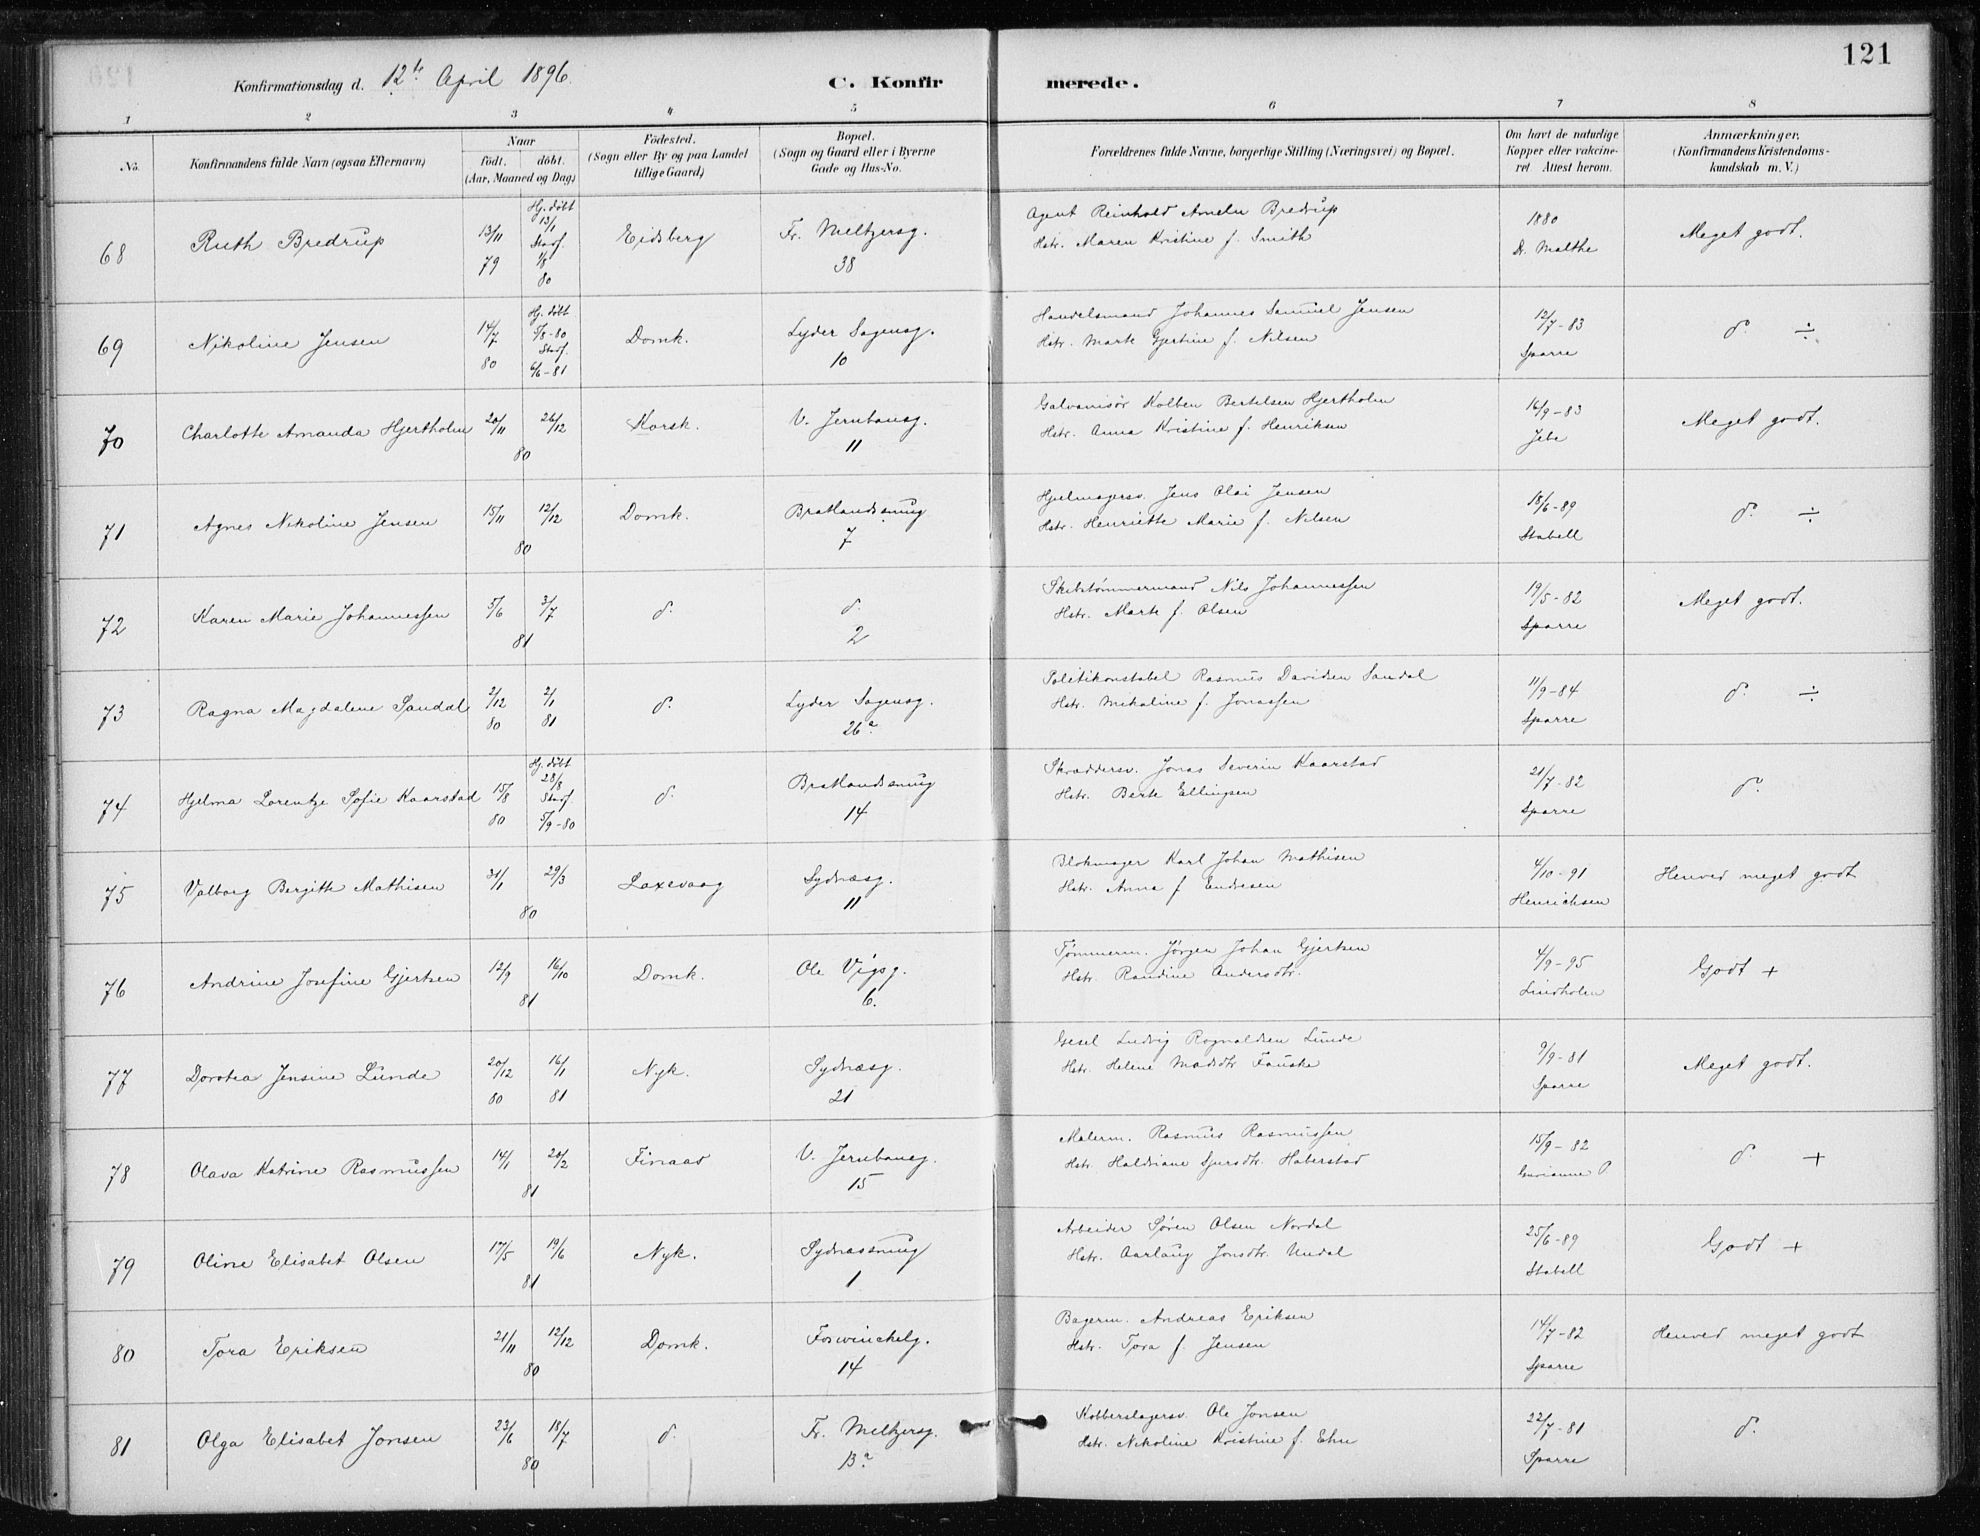 121
Konfirmationsdag d. 12te April 1896.
C. Konfirmerede.
1 2 3 4 5 6 7 8
No.
Konfirmandens fulde Navn (ogsaa Efternavn)
Naar
født. døbt.
(Aar, Maaned og Dag)
Fødested.
(Sogn eller By og paa Landet
tillige Gaard)
Bopæl.
(Sogn og Gaard eller i Byerne
Gade og Hus-No.
Forældrenes fulde Navne, borgerlige Stilling (Næringsvei) og Bopæl.
Om havt de naturlige
Kopper eller vakcine-
ret. Attest herom.
Anmærkninger.
(Konfirmandens Kristendoms-
kundskab m. V.)
68 Ruth Bredrup 13/11 79 Hj. døbt 13/1 Stadf. 1/8 80 Eidsberg Fr. Meltzersg. 38
Agent Reinhold Bredrup
Hstr. Maren Kristine f. Smith
1880 Dr. Malthe Meget godt.
69 Nikoline Jensen 14/7 80 Hj. døbt 5/8-80 Stadf. 6/6-81 Domk. Lyder Sagensg. 10
Handelsmand Johannes Samuel Jensen
Hstr. Marte Gjertine f. Nilsen
12/7-83 Sparre d. ÷
70 Charlotte Amanda Hjertholm 20/11 26/12 80 Korsk. V. Jernbaneg. 11
Galvanisør Kolben Bertelsen Hjertholm
Hstr. Anna Kristine f. Henriksen
16/9-83 Jebe Meget godt.
71 Agnes Nikoline Jensen 15/11 12/12 80 Domk. Bratlandsmug 7
Hjulmagersv. Jens Olai Jensen
Hstr. Henriette Marie f. Nilsen
18/6-89 Stabell d. ÷
72 Karen Marie Johannessen 5/6 3/7 81 d. d. 2
Skibstømmermand Nils Johannessen
Hstr. Marte f. Olsen
19/5-82 Sparre Meget godt.
73 Ragna Magdalene Sandal 2/12 80 2/1 81 d. Lyder Sagensg. 26a
Politikonstabel Rasmus Davidsen Sandal
Hstr. Mikaline f. Jonassen
11/9-84 Sparre d. ÷
74 Hjelma Lorentze Sofie Kaarstad 15/8 80 Hj. døbt 28/8 Stadf. 5/9-80 d. Bratlandsmug 14
Skræddersv. Jonas Severin Kaarstad
Hstr. Berte Ellingsen
21/7-82 Sparre d.
75 Valborg Bergitte Mathisen 31/1 29/3 80 Laxevaag Sydnæsg. 11
Blokmager Karl Johan Mathisen
Hstr. Anna f. Endresen
4/10-91 Henrichsen Henved meget godt
76 Andrine Josefine Gjertsen 12/9 16/10 81 Domk. Ole Vigsg. 6.
Tømmerm. Jørgen Johan Gjertsen
Hstr. Randine Andersdtr.
4/9-95 Lindholm Godt +
77 Dorotea Jensine Lunde 20/12 80 16/1 81 Nyk. Sydnæsg. 21
Gesel Ludvig Rognaldsen Lunde
Hstr. Helene Madsdtr Fauske
9/9-81 Sparre Meget godt.
78 Olava Katrine Rasmussen 14/1 20/2 81 Finaas V. Jernbaneg. 15
Malerm. Rasmus Rasmussen
Hstr. Haldriane Sjursdtr. Haberstad
15/9-82 d. +
79 Oline Elisabet Olsen 17/5 19/6 81 Nyk. Sydnæssmug 1
Arbeider Søren Olsen Nordal
Hstr. Aarlaug Jonsdtr. Undal
25/6-89 Stabell Godt +
80 Tora Eriksen 21/11 12/12 80 Domk. Forswinckelg. 14
Bagerm. Andreas Eriksen
Hstr. Tora f. Jensen
14/7-82 Sparre Henved meget godt
81 Olga Elisabet Jonsen 23/6 18/7 80 d. Fr. Meltzersg. 13a
Kobberslagersv. Ole Jonsen
Hstr. Nikoline Kristine f. Ehn
22/7-81 Sparre d.